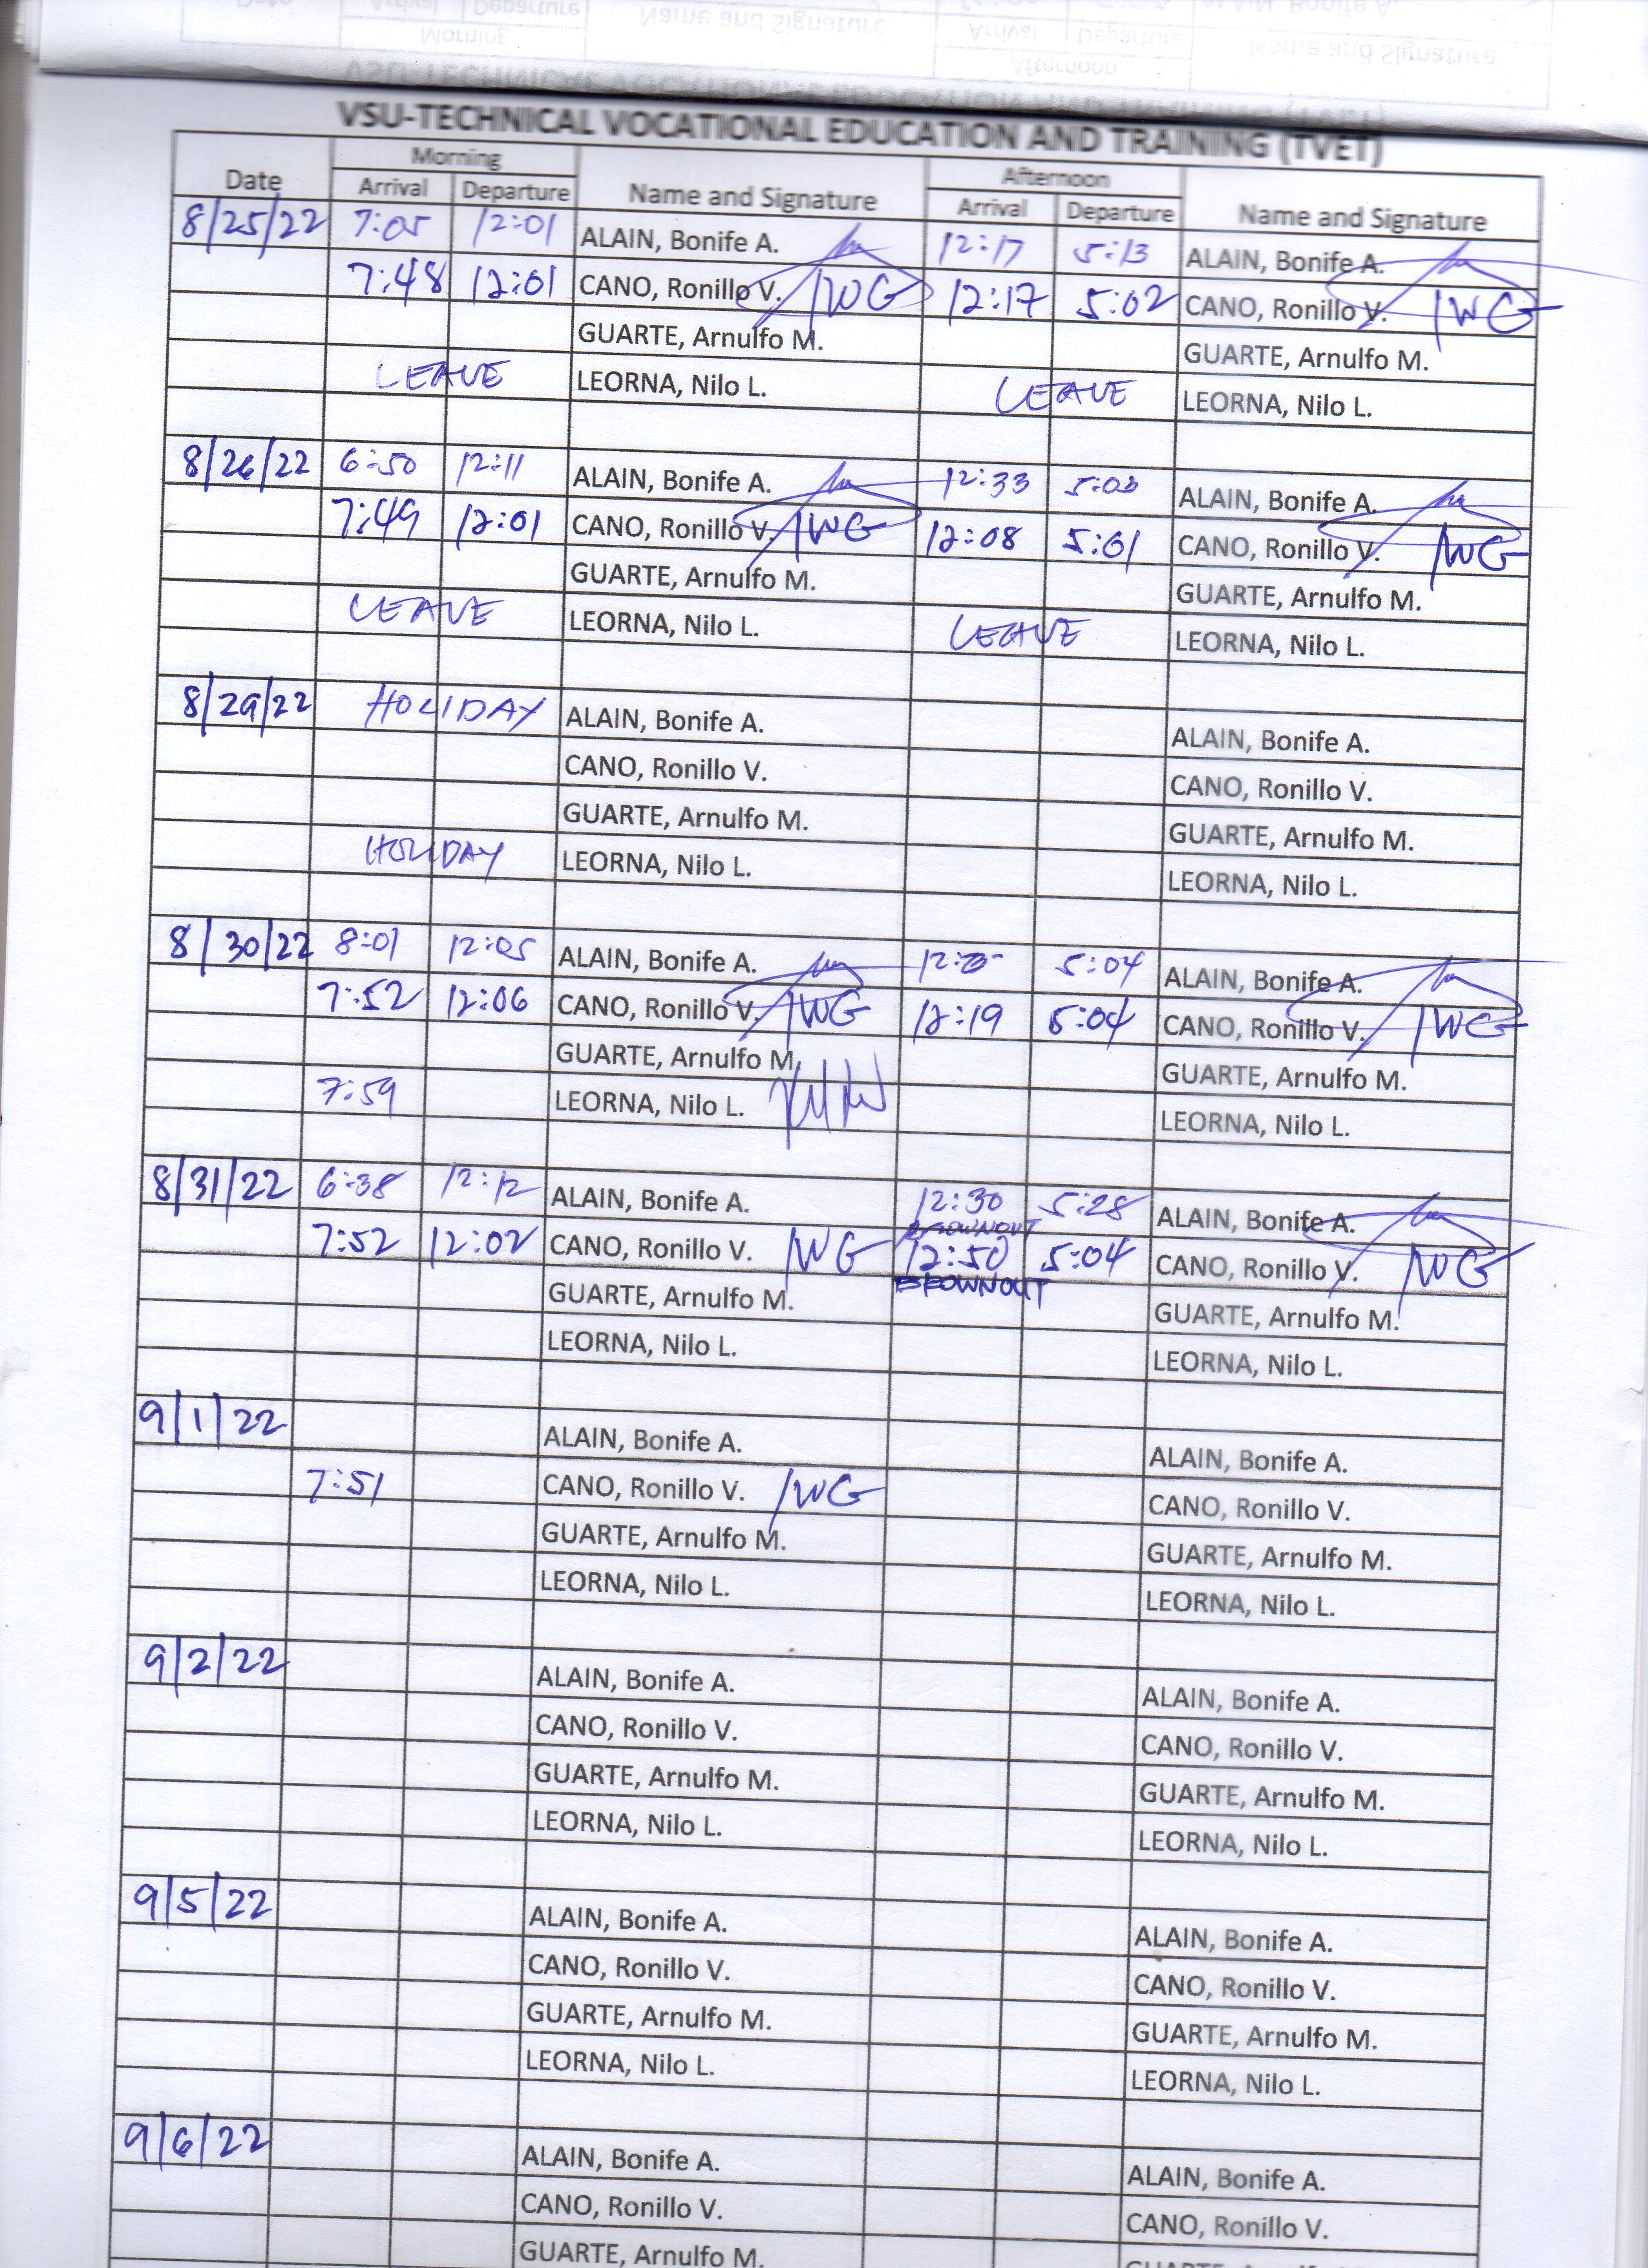 VSU-TECHNICAL VOCATIONAL EDUCATION AND TRAINING (TVET)
Date Morning Name and Signature Afternoon Name and Signature
Arrival Departure Arrival Departure
8/25/22 7:05 12:01 ALAIN, Bonife A. 12:17 5:13 ALAIN, Bonife A.
7:48 12:01 CANO, Ronillo V. 12:17 5:02 CANO, Ronillo V.
GUARTE, Arnulfo M. GUARTE, Arnulfo M.
LEAVE LEORNA, Nilo L. LEAVE LEORNA, Nilo L.
8/26/22 6:50 12:11 ALAIN, Bonife A. 12:33 ALAIN, Bonife A.
7:49 12:01 CANO, Ronillo V. 12:08 5:01 CANO, Ronillo V.
GUARTE, Arnulfo M. GUARTE, Arnulfo M.
LEAVE LEORNA, Nilo L. LEAVE LEORNA, Nilo L.
8/29/22 HOLIDAY ALAIN, Bonife A. ALAIN, Bonife A.
CANO, Ronillo V. CANO, Ronillo V.
GUARTE, Arnulfo M. GUARTE, Arnulfo M.
HOLIDAY LEORNA, Nilo L. LEORNA, Nilo L.
8/30/22 8:01 12:05 ALAIN, Bonife A. 5:04 ALAIN, Bonife A.
7:52 12:06 CANO, Ronillo V. 12:19 5:04 CANO, Ronillo V.
GUARTE, Arnulfo M. GUARTE, Arnulfo M.
7:59 LEORNA, Nilo L. LEORNA, Nilo L.
8/31/22 6:38 12:12 ALAIN, Bonife A. 12:30 5:28 ALAIN, Bonife A.
BROWNOUT
7:52 12:02 CANO, Ronillo V. 12:50 5:04 CANO, Ronillo V.
BROWNOUT
GUARTE, Arnulfo M. GUARTE, Arnulfo M.
LEORNA, Nilo L. LEORNA, Nilo L.
9/1/22 ALAIN, Bonife A. ALAIN, Bonife A.
7:51 CANO, Ronillo V. CANO, Ronillo V.
GUARTE, Arnulfo M. GUARTE, Arnulfo M.
LEORNA, Nilo L. LEORNA, Nilo L.
9/2/22 ALAIN, Bonife A. ALAIN, Bonife A.
CANO, Ronillo V. CANO, Ronillo V.
GUARTE, Arnulfo M. GUARTE, Arnulfo M.
LEORNA, Nilo L. LEORNA, Nilo L.
9/5/22 ALAIN, Bonife A. ALAIN, Bonife A.
CANO, Ronillo V. CANO, Ronillo V.
GUARTE, Arnulfo M. GUARTE, Arnulfo M.
LEORNA, Nilo L. LEORNA, Nilo L.
9/6/22 ALAIN, Bonife A. ALAIN, Bonife A.
CANO, Ronillo V. CANO, Ronillo V.
GUARTE, Arnulfo M.